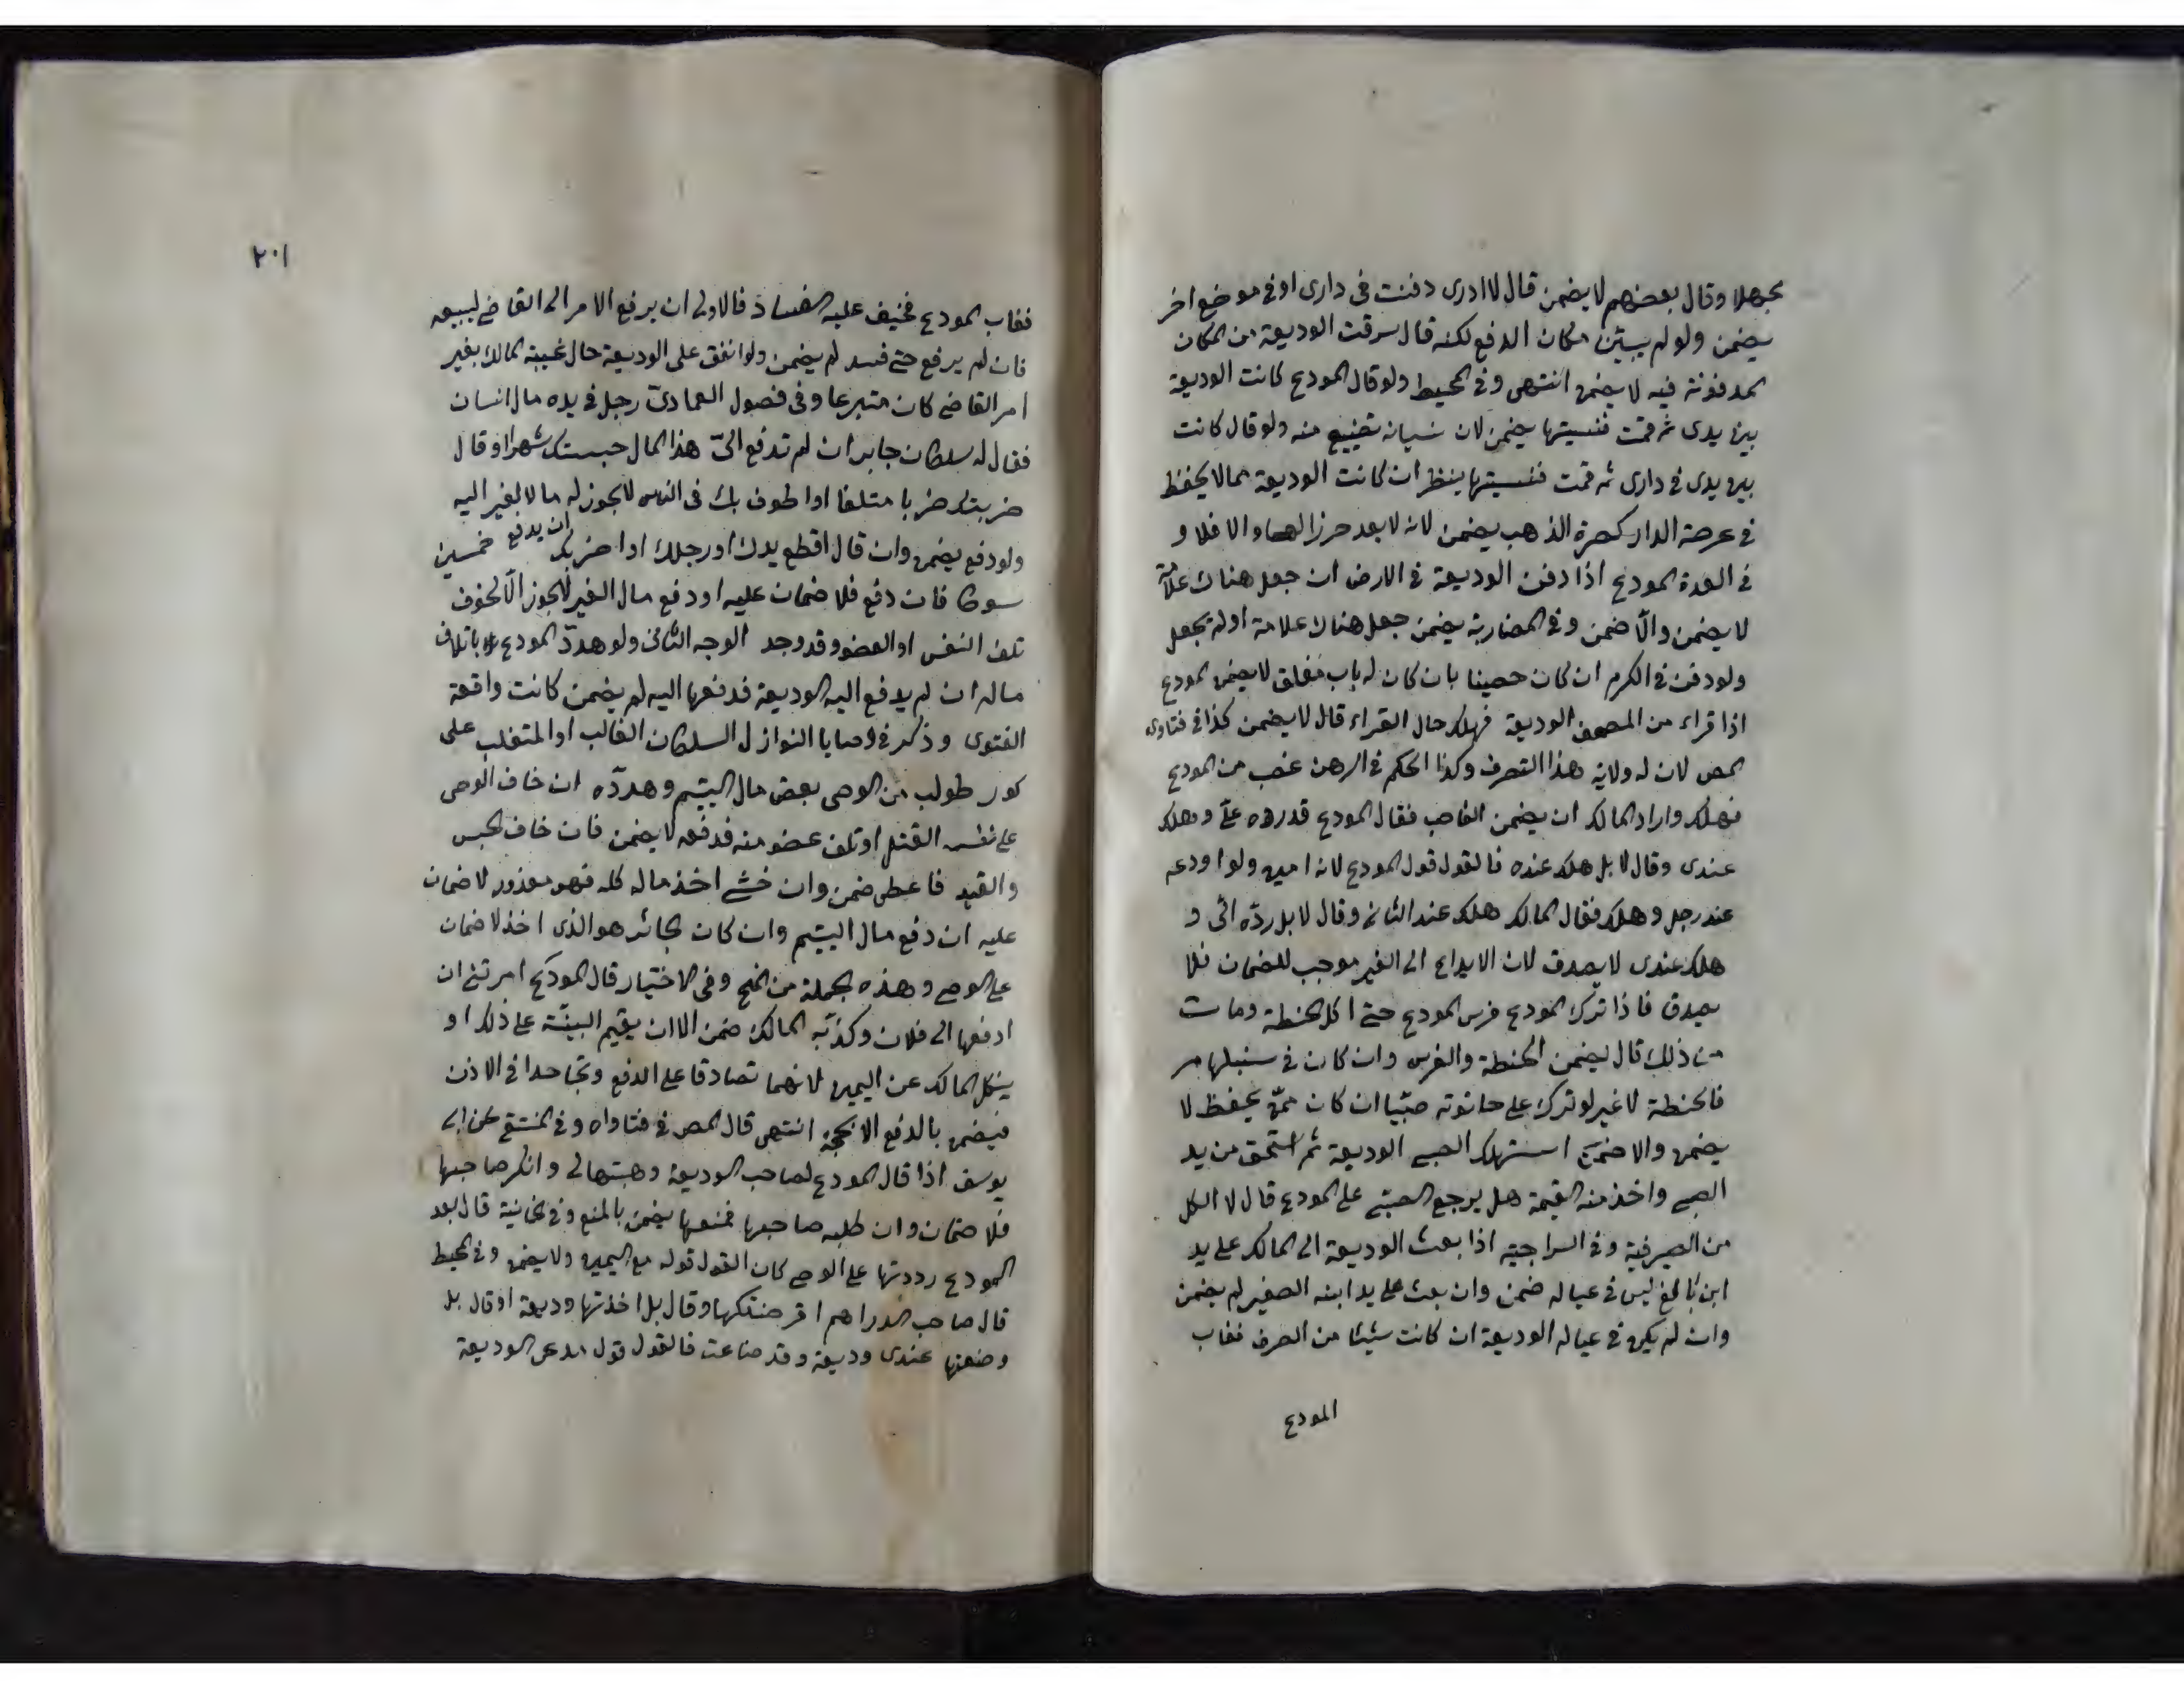 مجهلا وقال بعضهم لا يضمن قال لا ادرى دفنت فى دارى او فى موضع اخر
يضمن ولو لم يبين مكان الدفع لكنه قال سرقت الوديعة من المكان
المدفونة فيه لا يضمن انتهى وفى المحيط ولو قال المودع كانت الوديعة
بين يدى ثم قمت فنسيتها يضمن لان نسيانه تضييع منه ولو قال كانت
بين يدى فى دارى ثم قمت فنسيتها ينظر ان كانت الوديعة مما لا يحفظ
فى عرصة الدار كصرة الذهب يضمن لانه لا يعد حرزا لها والا فلا و
فى العدة المودع اذا دفن الوديعة فى الارض ان جعل هناك علامة
لا يضمن والّا ضمن وفى المضاربة يضمن جعل هناك علامة او لم يجعل
ولو دفن فى الكرم ان كان حصينا بان كان له باب مغلق لا يضمن المودع
اذا قراء من المصحف الوديعة فهلك حال القراءة قال لا يضمن كذا فى فتاوى
المص لان له ولاية هذا التصرف وكذا الحكم فى الرهن غصب من المودع
فهلك واراد المالك ان يضمن الغاصب فقال المودع قد رده علىّ وهلك
عندى وقال لا بل هلك عنده فالقول قول المودع لانه امين ولو اودعه
عند رجل وهلك فقال المالك هلك عند الثانى وقال لا بل ردّه الىّ و
هلك عندى لا يصدق لان الايداع الى الغير موجب للضمان فلا
يصدق فاذا ترك المودع فرس المودع حتى اكل الحنطة ومات
من ذلك قال يضمن الحنطة والفرس وان كان فى سنبلها مر
فالحنطة لا غير لو ترك على حانوته صبيّا ان كان ممن يحفظ لا
يضمن والا ضمن استهلك الصبى الوديعة ثم استحق من يد
الصبى واخذ منه القيمة هل يرجع الصبى على المودع قال لا الكل
من الصيرفية وفى السراجية اذا بعث الوديعة الى المالك على يد
ابن بالغ ليس فى عياله ضمن وان بعث على يد ابنه الصغير لم يضمن
وان لم يكن فى عياله الوديعة ان كانت شيئا من الصوف فغاب
المودع
٢٠١
فغاب المودع فخيف عليه الفساد فالاولى ان يرفع الامر الى القاضى ليبيعه
فان لم يرفع حتى فسد لم يضمن ولو انفق على الوديعة حال غيبة المالك بغير
امر القاضى كان متبرعا وفى فصول العمادى رجل فى يده مال انسان
فقال له سلطان جابر ان لم تدفع الىّ هذا المال حبستك شهرا وقال
ضربتك ضربا متلفا او اطوف بك فى الناس لا يجوز له مالا لغير اليه
ولو دفع يضمن وان قال اقطع يدك او رجلك او اضربك ان يدفع خمسين
سوطا فان دفع فلا ضمان عليه او دفع مال الغير لا يجوز الّا لخوف
تلف النفس او العضو وقد وجد الوجه الثانى ولو هدّد المودع باتلاف
ماله ان لم يدفع اليه الوديعة فدفعها اليه لم يضمن كانت واقعة
الفتوى وذكر فى وصايا النوازل السلطان الغالب او المتغلب على
كور طولب من الوصى بعض مال اليتيم وهدّده ان خاف الوصى
على نفسه القتل او تلف عضو منه فدفعه لا يضمن فان خاف الحبس
والقيد فاعطى ضمن وان خشى اخذ ماله كله فهو معذور لا ضمان
عليه ان دفع مال اليتيم وان كان الجائر هو الذى اخذ لا ضمان
على الوصى وهذه الجملة من المنح وفى الاختيار قال المودع امرتنى ان
ادفعها الى فلان وكذّبه المالك ضمن الا ان يقيم البينة على ذلك او
ينكل المالك عن اليمين لانهما تصادقا على الدفع وتجاحدا فى الاذن
فيضمن بالدفع الا بحجة انتهى قال المص فى فتاواه وفى المنتقى عن ابى
يوسف اذا قال المودع لصاحب الوديعة وهبتها لى وانكر صاحبها
فلا ضمان وان طلبه صاحبها فمنعها يضمن بالمنع وفى الخانية قال بعد
المودع رددتها على الوصى كان القول قوله مع اليمين ولا يضمن وفى المحيط
قال صاحب الدراهم اقرضتكها وقال بل اخذتها وديعة او قال بل
وضعتها عندى وديعة وقد ضاعت فالقول قول مدعى الوديعة